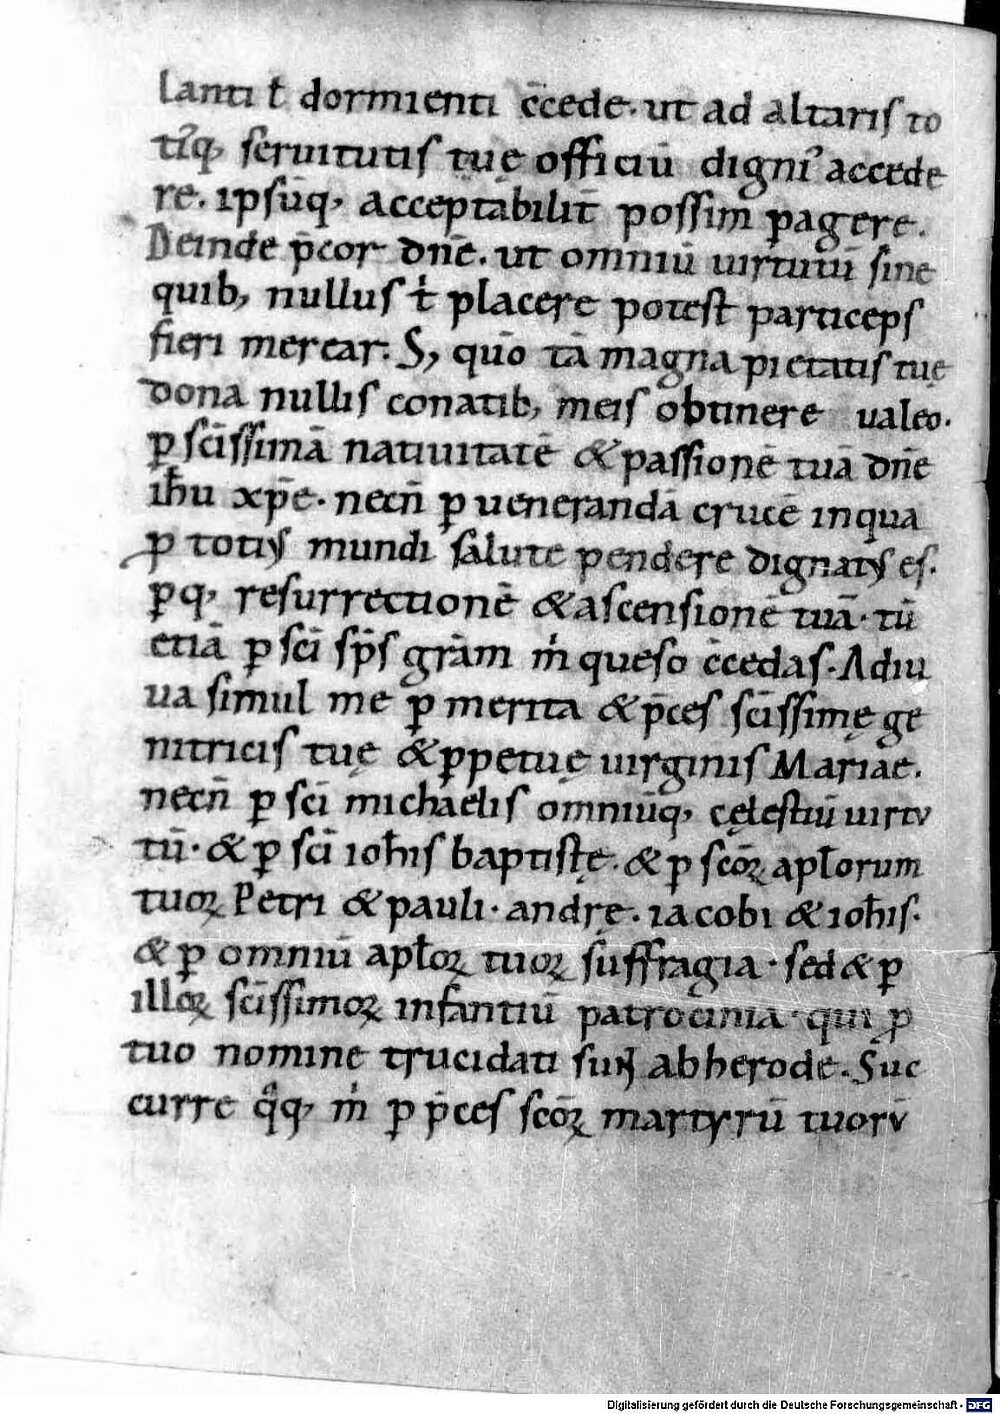 lanti ł dormienti c̄cede. ut ad altaris to
tiꝰq; seruitutis tuę officiū digniꝰ accede
re. ipsūq; acceptabilit̄ possim ꝑagere.
Deinde p̄cor dn̄e. ut omniū uirtutū sine
quib; nullus t̍ placere potest particeps
fieri merear. S; quō tā magna pietatis tuę
dona nullis conatib; meis obtinere ualeo.
ꝑ sc̄issimā natiuitatē & passionē tuā dn̄e
ih̄u xp̄e. necn̄ ꝑ uenerandā crucē in qua
ꝓ totiꝰ mundi salute pendere dignatꝰ es.
ꝑq; resurrectionē & ascensionē tuā. tū
etiā ꝑ sc̄i sp̄s grām m̍ queso c̄cedas. Adiu
ua simul me ꝑ merita & p̄ces sc̄issimę ge
nitricis tuę & ꝑpetuę uirginis Mariae.
necn̄ ꝑ sc̄i michaelis omniūq; cęlestiū uirtu
tū. & ꝑ sc̄i ioh̄is baptistę. & ꝑ sc̄oꝝ apl̄orum
tuoꝝ Petri & pauli. andrę. iacobi & ioh̄is.
& ꝑ omniū apl̄oꝝ tuoꝝ suffragia. sed & ꝑ
illoꝝ sc̄issimoꝝ infantiū patrocinia. qui ꝓ
tuo nomine trucidati sunt ab herode. Suc
curre qͣq; m̍ ꝑ p̄ces sc̄oꝝ martyrū tuorū
Digitalisierung gefördert durch die Deutsche Forschungsgemeinschaft - DFG